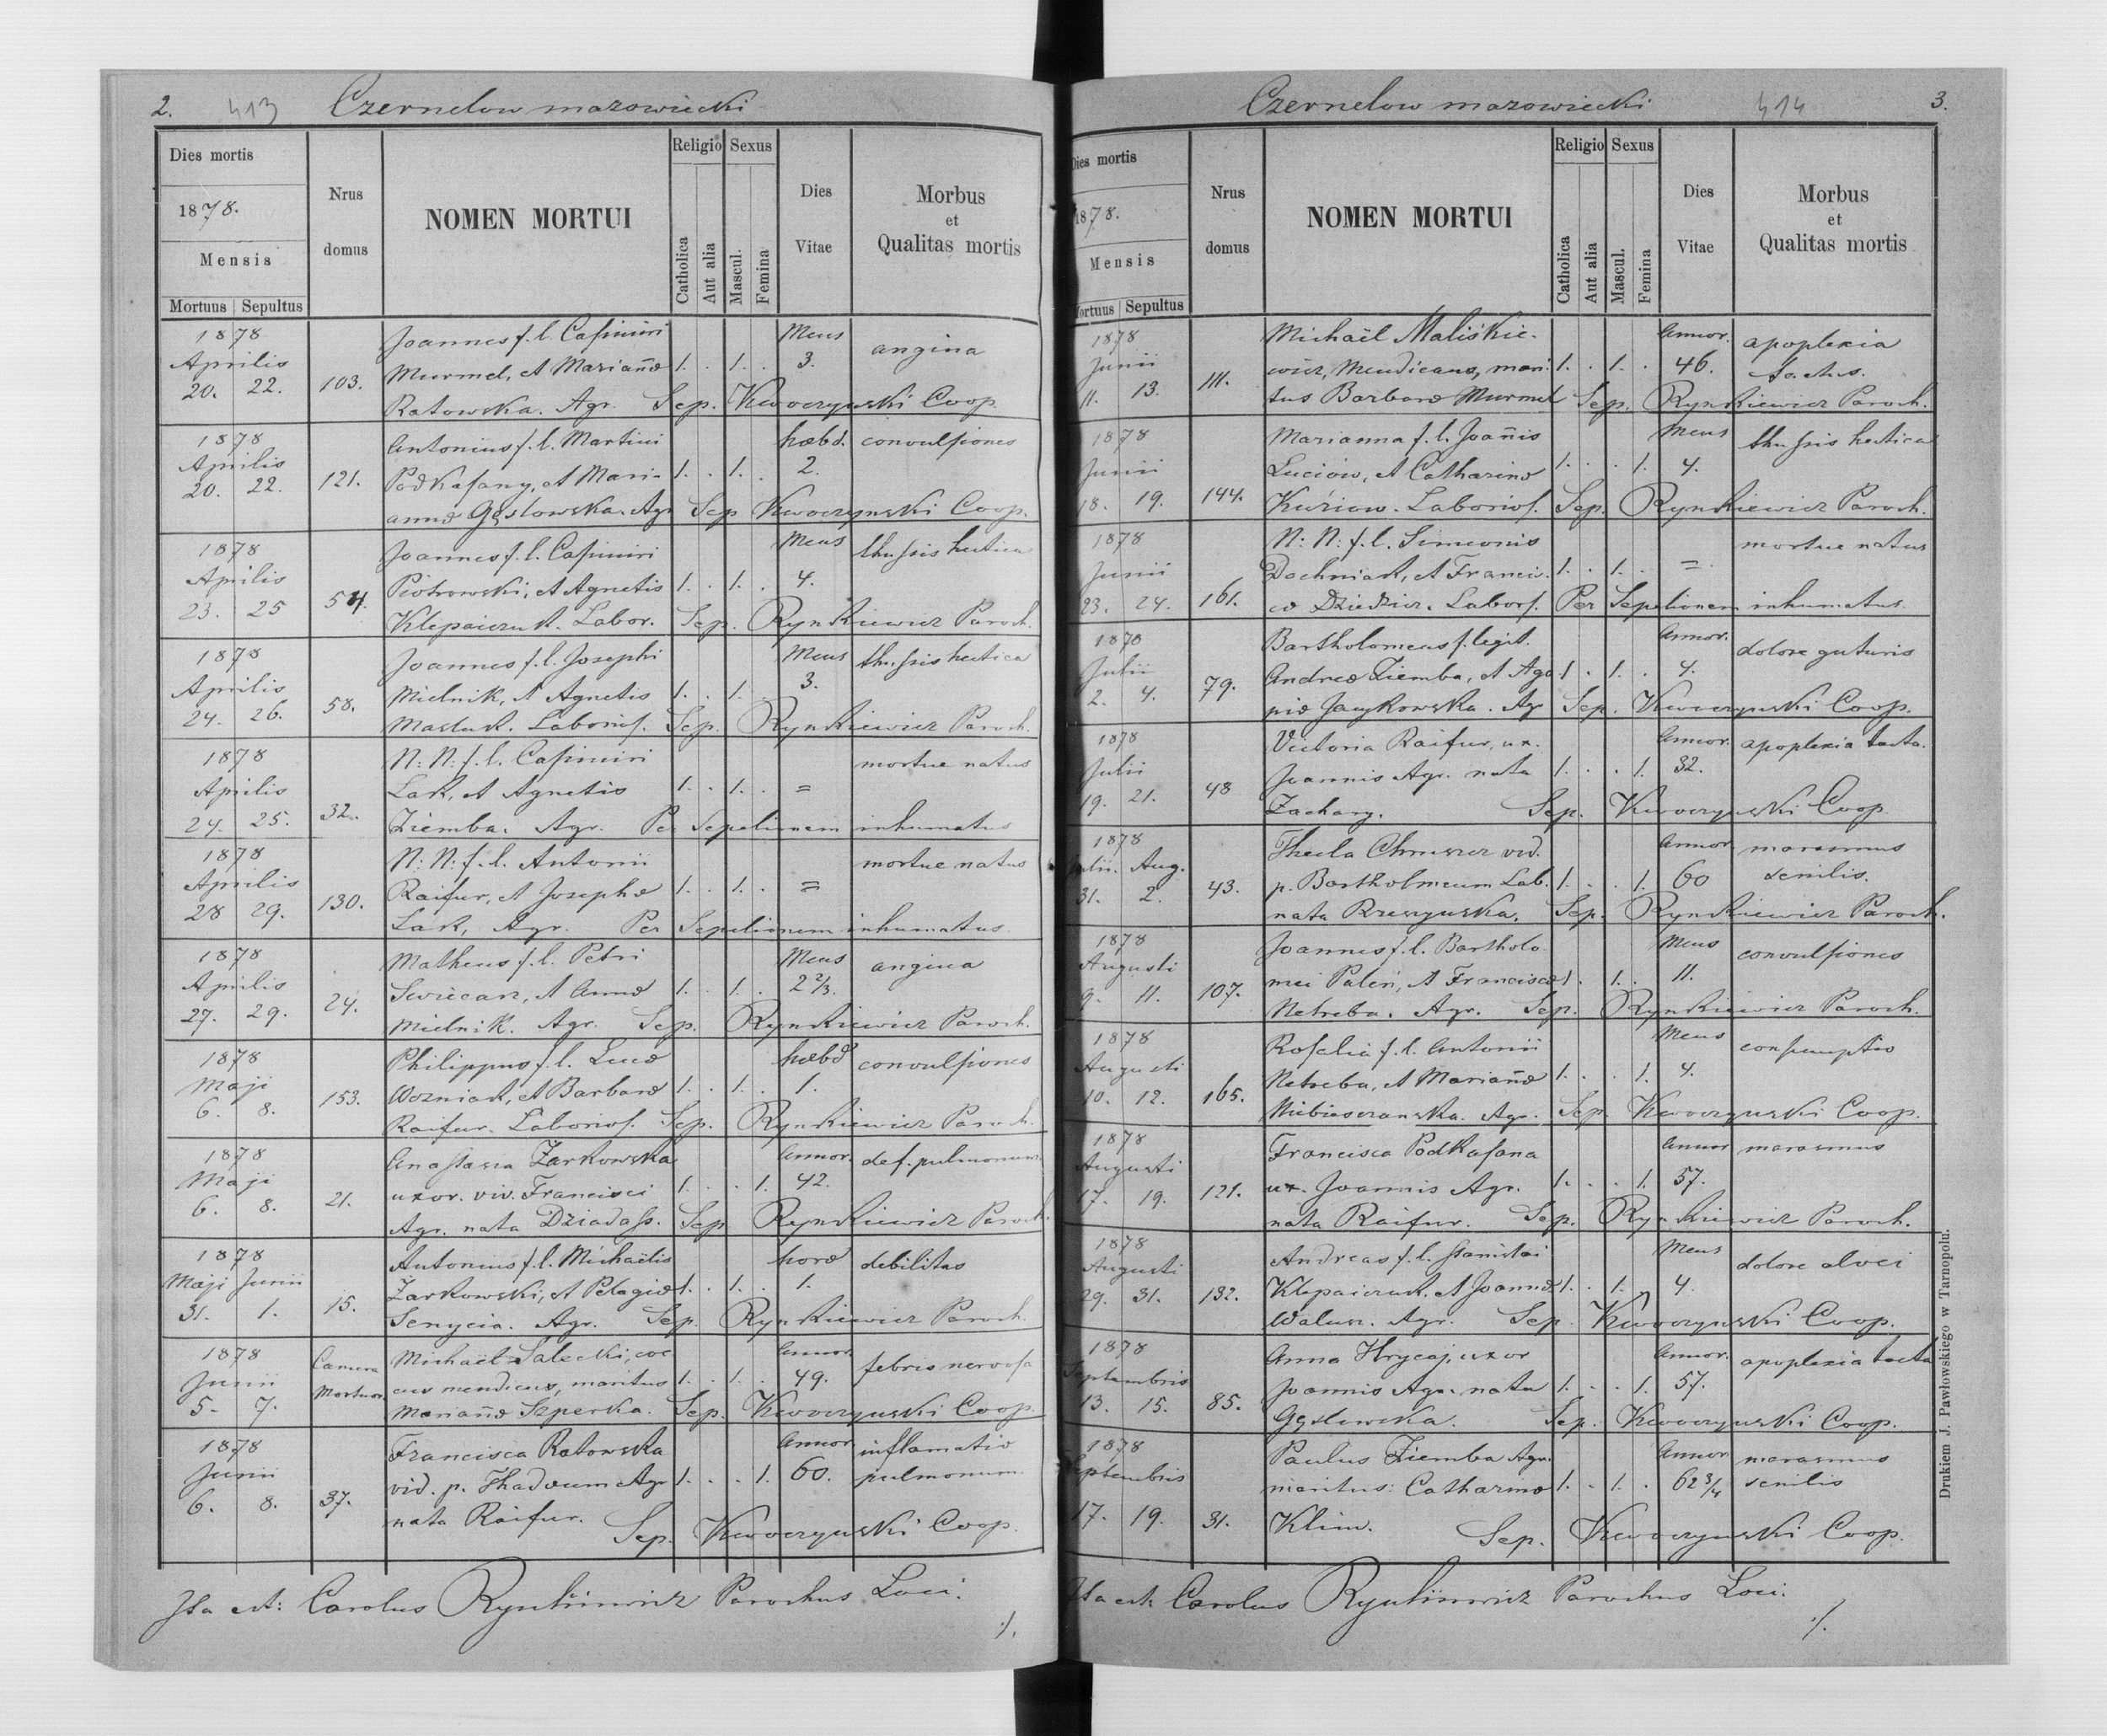 2. 413 Czernelow mazowiecki
Dies mortis
1878.
Mensis
Mortuus Sepultus
Nrus domus
NOMEN MORTUI
Religio
Catholica
Aut alia
Sexus
Mascul.
Femina
Dies Vitae
Morbus et Qualitas mortis
1878 Joannes f. l. Casimiri Mens
Aprilis Murmel, et Mariañae 1. . 1. . 3. angina
20. 22. 103. Ratowska. Agr. Sep. Kwoczynski Coop.
1878 Antonius f. l. Martini hæbd. convulsiones
Aprilis Podkasany, et Mari- 1. . 1. . 2.
20. 22. 121. annæ Gęslowska. Agr Sep Kwoczynski Coop.
1878 Joannes f. l. Casimiri Mens thussis hectica
Aprilis Piotrowski, et Agnetis 1. . 1. . 4.
23. 25 54. Klepaiczuk. Labor. Sep. Rynkiewicz Paroch.
1878 Joannes f. l. Josephi Mens thussis hectica
Aprilis Mielnik, et Agnetis 1. . 1. . 3.
24. 26. 58. Masluk. Laborios. Sep. Rynkiewicz Paroch.
1878 N: N: f. l. Casimiri mortue natus
Aprilis Lak, et Agnetis 1. . 1. . =
24. 25. 32. Ziemba. Agr. Per Sepelionem inhumatus
1878 N: N: f. l. Antonii mortue natus
Aprilis Raifur, et Josephæ 1. . 1. . =
28 29. 130. Lak, Agr. Per Sepelionem inhumatus.
1878 Matheus f. l. Petri Mens angina
Aprilis Swiecarz, et Annæ 1. . 1. . 2 2/3.
27. 29. 24. Mielnik. Agr. Sep. Rynkiewicz Paroch.
1878 Philippus f. l. Lucæ hæbd convulsiones
Maji Wozniak, et Barbaræ 1. . 1. . 1.
6. 8. 153. Raifur. Laborios. Sep. Rynkiewicz Paroch.
1878 Anastasia Zarkowska Annor. def. pulmonum
Maji uxor. viv. Francisci 1. . . 1. 42.
6. 8. 21. Agr. nata Dziadass. Sep Rynkiewicz Paroch.
1878 Antonius f. l. Michaëlis horæ debilitas
Maji Junii Zarkowski, et Pelagiæ 1. . 1. . 1.
31. 1. 15. Senycia. Agr. Sep. Rynkiewicz Paroch.
1878 Camera Michaël Salecki, coe Annor. febris nervosa
Junii Mortuor. cus mendicus, maritus 1. . 1. . 49.
5. 7. Mariañæ Szperka. Sep. Kwoczynski Coop.
1878 Francisca Ratowska Annor inflamatio
Junii vid. p. Thadæum Agr 1. . . 1. 60. pulmonum.
6. 8. 37. nata Raifur. Sep. Kwoczynski Coop.
Ita est: Carolus Rynkiewicz Parochus Loci.
./.
Czernelow mazowiecki 414 3.
Dies mortis
1878.
Mensis
Mortuus Sepultus
Nrus domus
NOMEN MORTUI
Religio
Catholica
Aut alia
Sexus
Mascul.
Femina
Dies Vitae
Morbus et Qualitas mortis
1878 Michaël Maliskie- Annor. apoplexia
Junii wicz, Mendicans, mari- 1. . 1. . 46. tactus.
11. 13. 111. tus Barbaræ Murmel Sep. Rynkiewicz Paroch.
1878 Marianna f. l. Joañis Mens thussis hectica
Junii Luciów, et Catharinæ 1. . . 1. 4.
18. 19. 144. Kuziow. Laborios. Sep. Rynkiewicz Paroch.
1878 N: N: f. l. Simeonis mortue natus
Junii Dochniak, et Francis- 1. . 1. . =
23. 24. 161. cæ Dziedzic. Labors. Per Sepelionem inhumatus.
1878 Bartholomeus f. legit. Annor. dolore guturis
Julii Andreæ Ziemba, et Aga 1. . 1. . 4.
2. 4. 79. piæ Jaykowska. Agr Sep. Kwoczynski Coop.
1878 Victoria Raifur, ux. Annor. apoplexia tacta.
Julii Joannis Agr. nata 1. . . 1. 32.
19. 21. 48 Zachary. Sep. Kwoczynski Coop.
1878 Thecla Chruszcz vid. Annor marasmus
Julii. Aug. p. Bartholmeum Lab. 1. . . 1. 60 senilis.
31. 2. 43. nata Brezynska. Sep. Rynkiewicz Paroch.
1878 Joannes f. l. Bartholo- Mens convulsiones
Augusti mei Paleń, et Franciscæ 1. . 1. . 11.
9. 11. 107. Netreba. Agr. Sep. Rynkiewicz Paroch.
1878 Rosalia f. l. Antonii Mens consumptio
Augusti Netreba, et Mariañæ 1. . . 1. 4.
10. 12. 165. Niebieszczanska. Agr. Sep Kwoczynski Coop.
1878 Francisca Podkasana Annor marasmus
Augusti ux. Joannis Agr. 1. . . 1. 57.
17. 19. 121. nata Raifur. Sep. Rynkiewicz Paroch.
1878 Andreas f. l. Stanislai Mens dolore alvei
Augusti Klepaiczuk, et Joannæ 1. . 1. . 4.
29. 31. 132. Walusz. Agr. Sep Kwoczynski Coop.
1878 Anna Hrycaj, uxor Annor. apoplexia tacta
Septembris Joannis Agr. nata 1. . . 1. 57.
13. 15. 85. Gęslowska. Sep. Kwoczynski Coop.
1878 Paulus Ziemba Agr. Annor. marasmus
Septembris maritus: Catharinæ 1. . 1. . 62 3/4 senilis
17. 19. 31. Klim. Sep. Kwoczynski Coop.
Ita est: Carolus Rynkiewicz Parochus Loci.
./.
Drukiem J. Pawłowskiego w Tarnopolu.